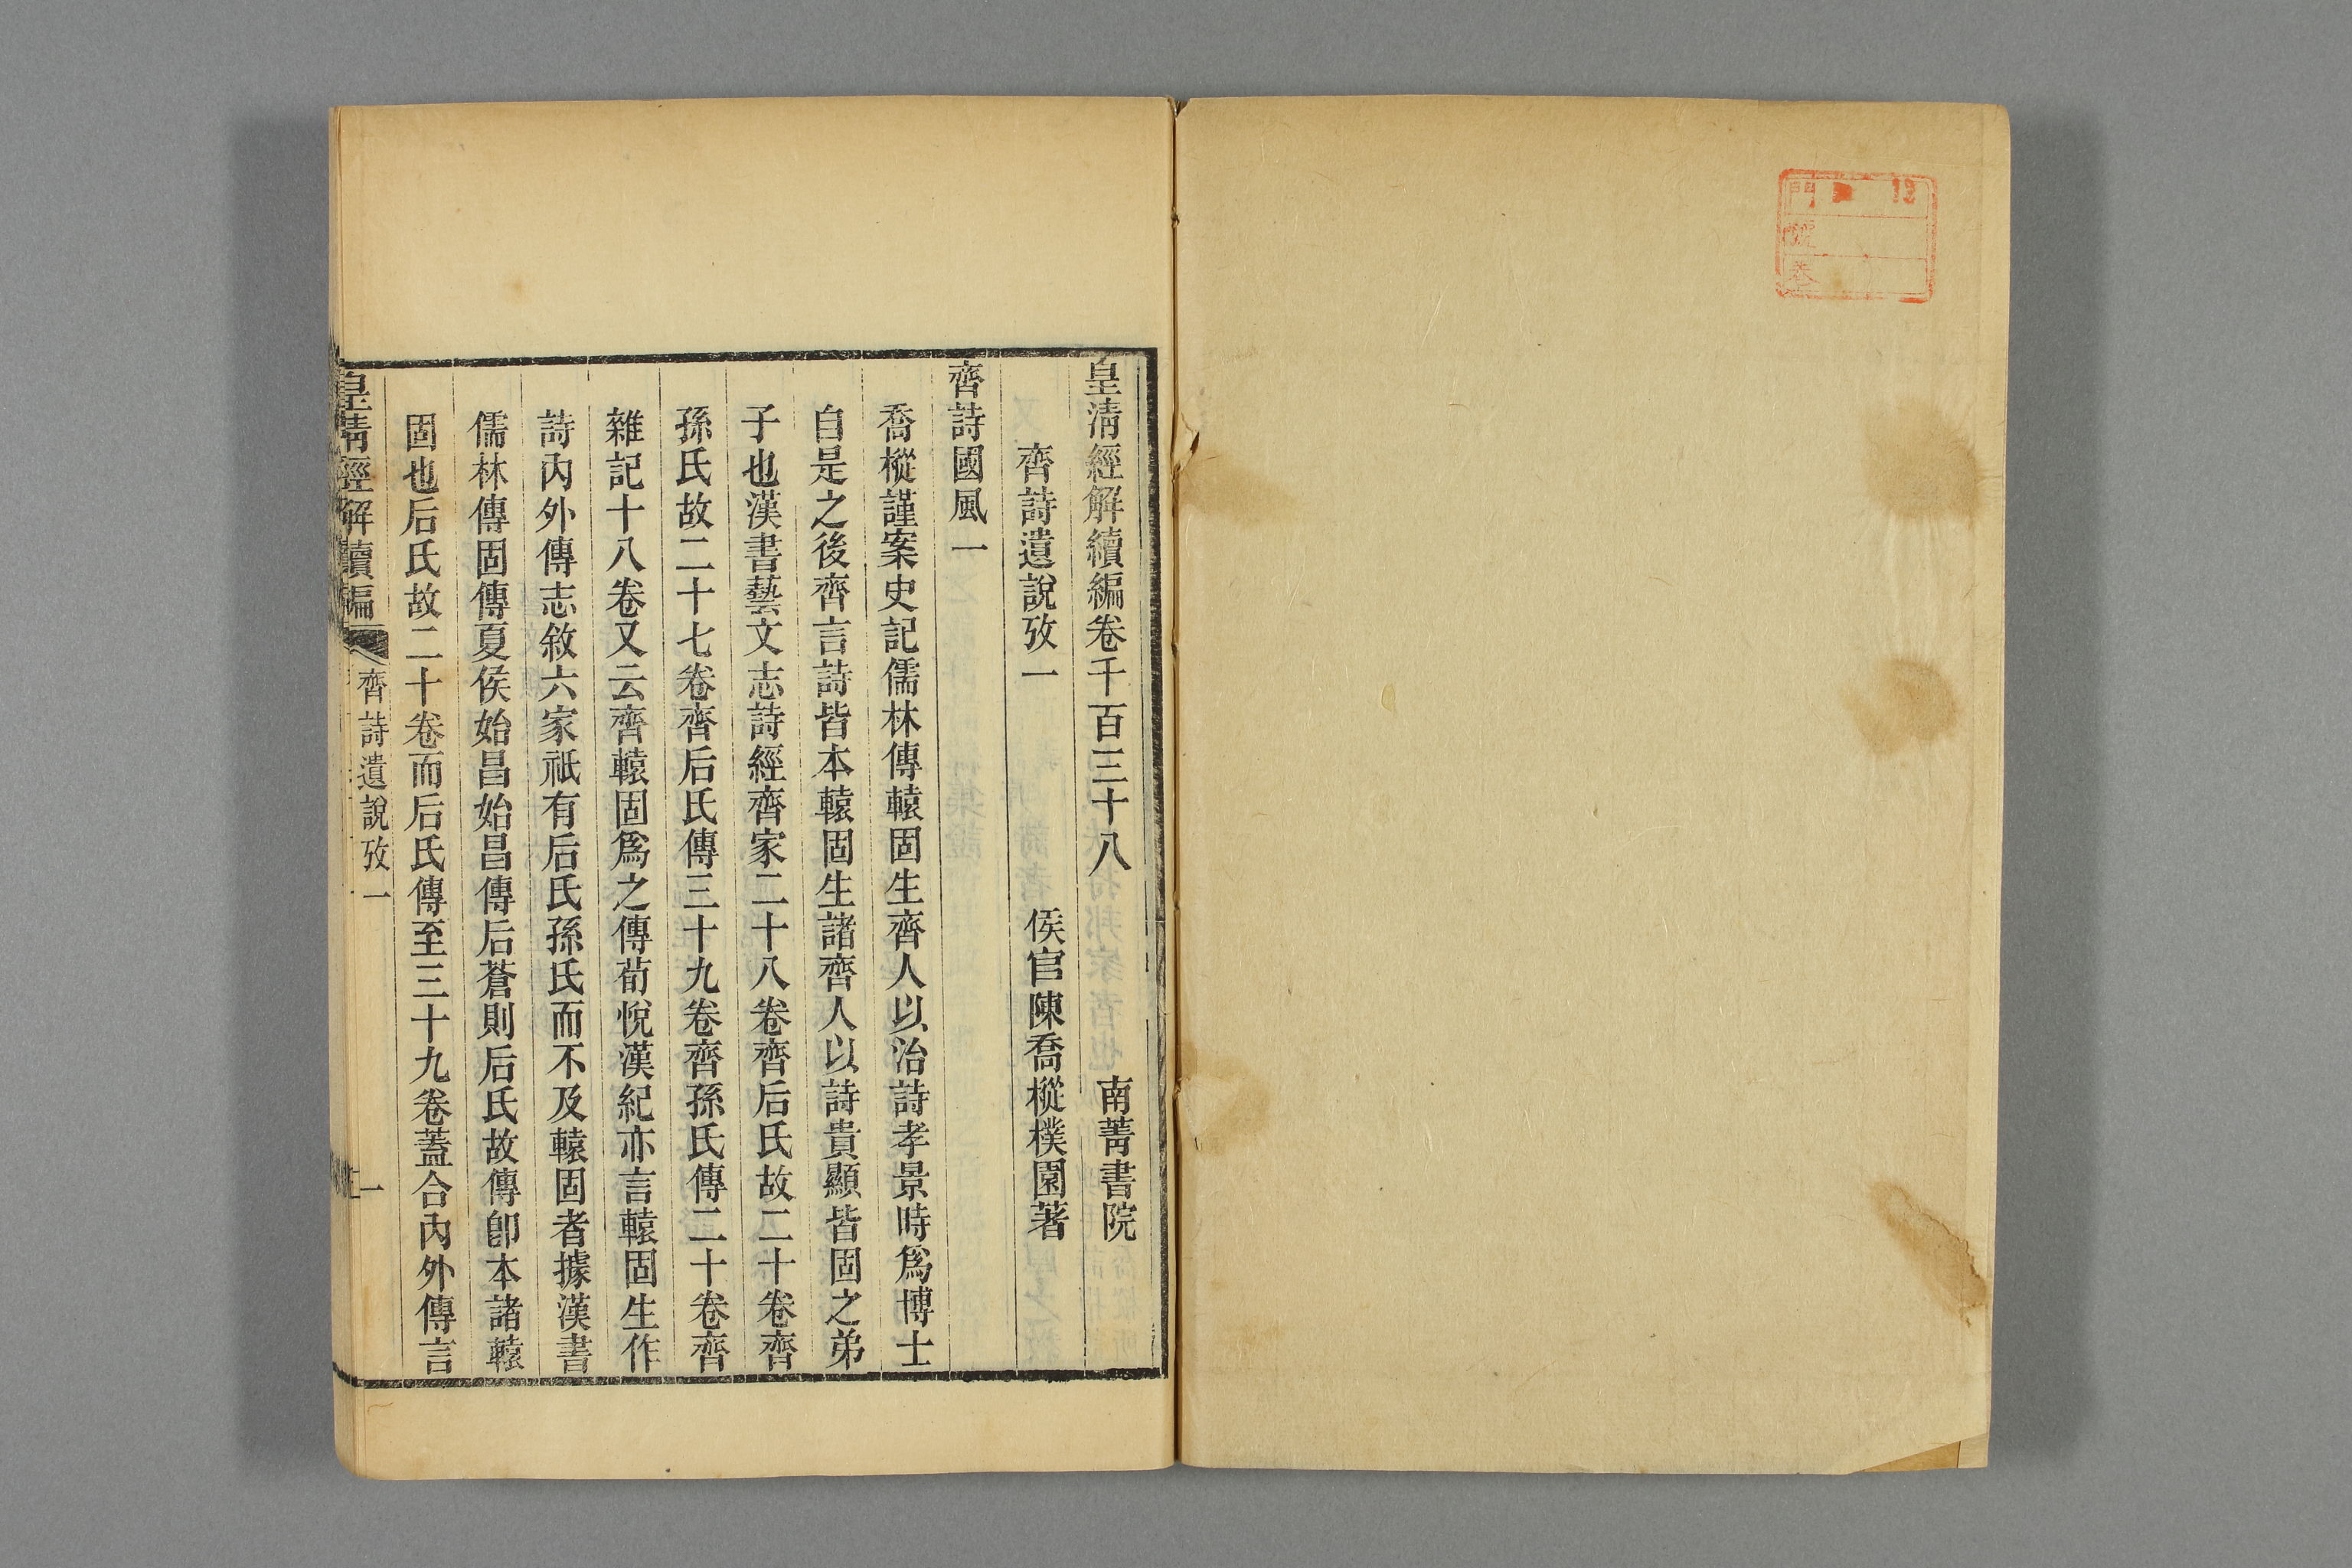 門 13
號
卷
皇清經解續編卷千百三十八 南菁書院
齊詩遺說攷一 侯官陳喬樅樸園著
齊詩國風一
喬樅謹案史記儒林傳轅固生齊人以治詩孝景時爲博士
自是之後齊言詩皆本轅固生諸齊人以詩貴顯皆固之弟
子也漢書藝文志詩經齊家二十八卷齊后氏故二十卷齊
孫氏故二十七卷齊后氏傳三十九卷齊孫氏傳二十卷齊
雜記十八卷又云齊轅固爲之傳荀悅漢紀亦言轅固生作
詩內外傳志敘六家祇有后氏孫氏而不及轅固者據漢書
儒林傳固傳夏侯始昌始昌傳后蒼則后氏故傳卽本諸轅
固也后氏故二十卷而后氏傳至三十九卷蓋合內外傳言
皇清經解續編 齊詩遺說攷一 一